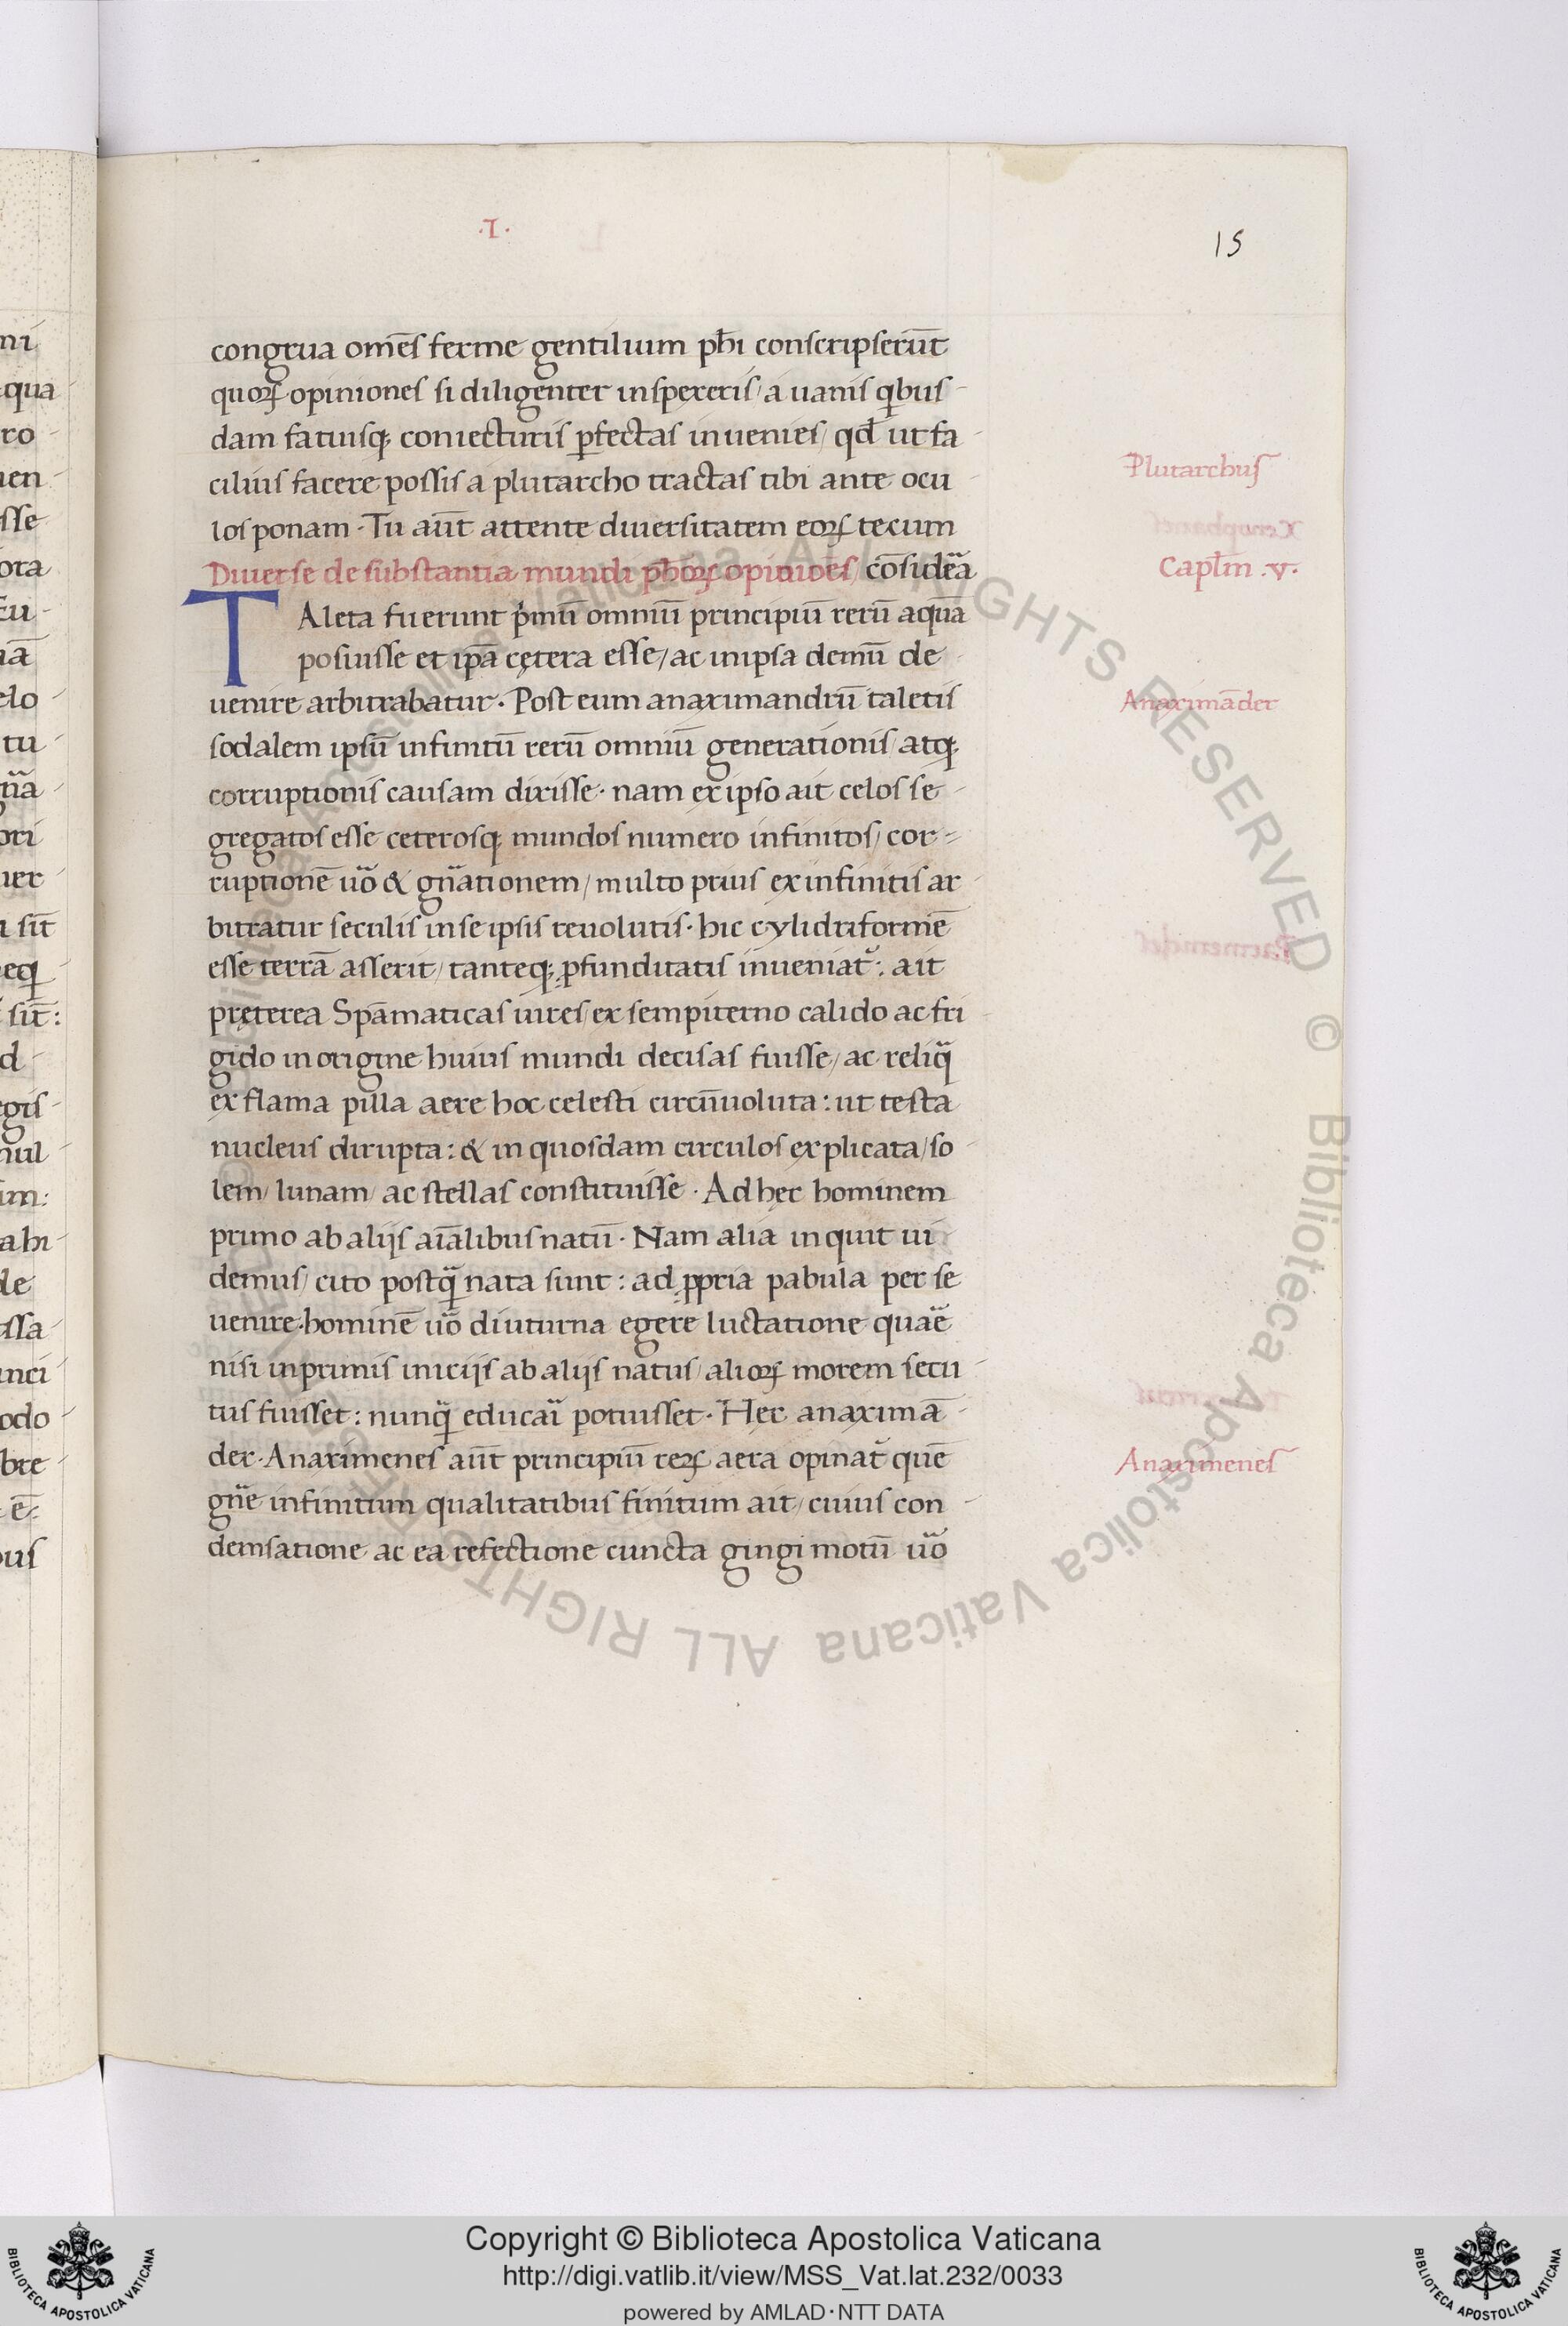 .I.
15
congrua om̅es ferme gentilium phi̅ conscripserūt
quoꝝ opiniones si diligenter inspexeris/ a uanis q̇bus-
dam fatuisq; coniecturis ꝑfectas inuenies/ qđ ut fa-
cilius facere possis a plutarcho tractas tibi ante ocu-
los ponam. Tu aūt attente diuersitatem eoꝝ tecum
Plutarchus
Diuerse de substantia mundi ph̅oꝝ opinioēs/ cōsid̅ea
Capl̅m .v.
TAleta fuerunt p̍mū omniū principiū rerū aquā
posuisse et ipā cętera esse/ ac inipsa demū de-
uenire arbitrabatur. Post eum anaximandrū taletis
Anaximāder
sodalem ipsū infinitū rerū omniū generationis/ atq;
corruptionis causam dixisse. nam ex ipso ait celos se-
gregatos esse ceterosq; mundos numero infinitos/ cor=
ruptionē uo̅ & gn̅ationem/ multo prius ex infinitis ar-
bitratur seculis in se ipsis reuolutis. hic cylidriformē
esse terrā asserit/ tanteq; ꝓfunditatis inueniat᷑: ait
pręterea Spāmaticas uires/ ex sempiterno calido ac fri-
gido in origine huius mundi decisas fuisse/ ac reliq̅
ex flama pilla aere hoc celesti circūuoluta: ut testa
nucleus dirupta: & in quosdam circulos explicata/ so-
lem/ lunam/ ac stellas constituisse. Ad hec hominem
primo ab aliis aīalibus natū. Nam alia inquit ui-
demus/ cito postq̅ nata sunt: ad ꝓpria pabula per se
uenire. hominē uo̅ diuturna egere luctatione quae̅
nisi inprimis iniciis ab aliis natus/ alioꝝ morem secu-
tus fuisset: nunq̅ educai̅ potuisset. Hec anaximā-
der. Anaximenes aūt principiū reꝝ aera opinat᷑ quē
Anaximenes
gn̅e infinitum qualitatibus finitum ait/ cuius con-
densatione ac ea refectione cuncta gingi motū uo̅
Copyright © Biblioteca Apostolica Vaticana
http://digi.vatlib.it/view/MSS_Vat.lat.232/0033
powered by AMLAD·NTT DATA